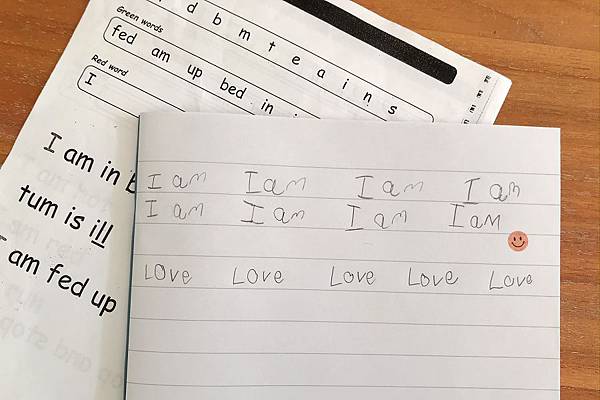 d b m t e a i n s
Green words
fed am up bed in
Red word
I
I am in
tum is ill
am fed up
I am I am I am I am
I am I am I am I am
Love Love Love Love Love